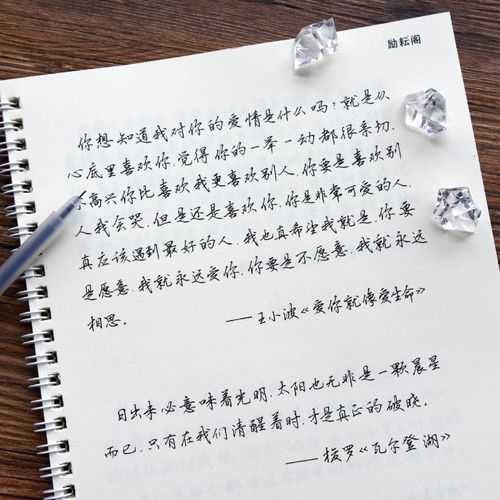 励耘阁
你想知道我对你的爱情是什么吗?就是从
心底里喜欢你,觉得你的一举一动都很亲切,
不高兴你比喜欢我更喜欢别人,你要是喜欢别
人我会哭,但是还是喜欢你,你是非常可爱的人,
真应该遇到最好的人,我也真希望我就是,你要
是愿意,我就永远爱你,你要是不愿意,我就永远
相思。
——王小波《爱你就像爱生命》
日出未必意味着光明,太阳也无非是一颗晨星
而已,只有在我们清醒着时,才是真正的破晓。
——梭罗《瓦尔登湖》